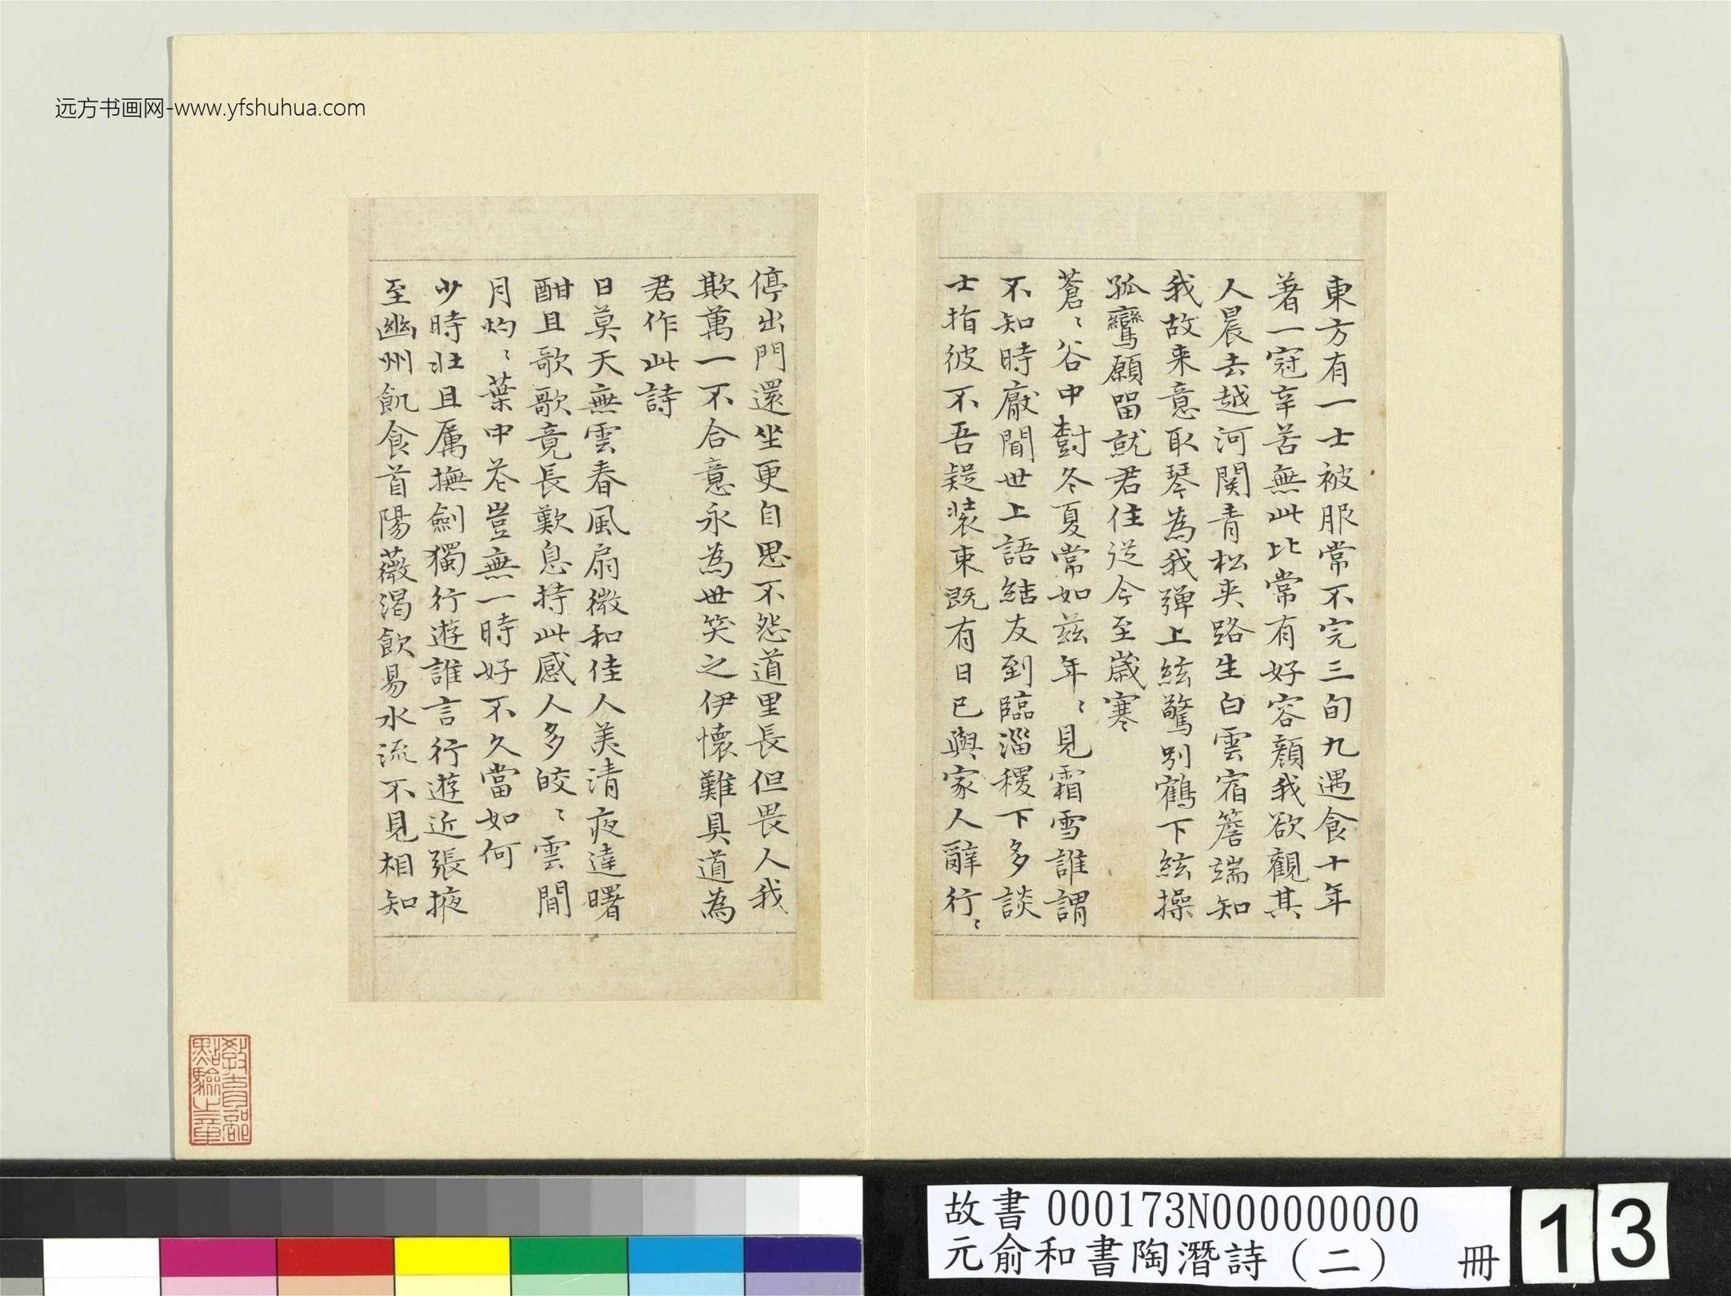 远方书画网-www.yfshuhua.com
東方有一士被服常不完三旬九遇食十年
著一冠辛苦無此比常有好容顔我欲觀其
人晨去越河関青松夾路生白雲宿簷端知
我故来意取琴為我弾上絃驚別鶴下絃操
孤鸞願留就君住従今至歳寒
蒼〻谷中樹冬夏常如兹年〻見霜雪誰謂
不知時厭聞世上語結友到臨淄稷下多談
士指彼不吾疑装束既有日已與家人辭行〻
停出門還坐更自思不怨道里長但畏人我
欺萬一不合意永為世笑之伊懐難具道為
君作此詩
日莫天無雲春風扇微和佳人美清夜達曙
酣且歌歌竟長歎息持此感人多皎〻雲間
月灼〻葉中花豈無一時好不久當如何
少時壯且厲撫劍獨行遊誰言行遊近張掖
至幽州飢食首陽薇渴飲易水流不見相知
教育部
點驗之章
故書 000173N000000000
元俞和書陶潛詩（二） 冊
13